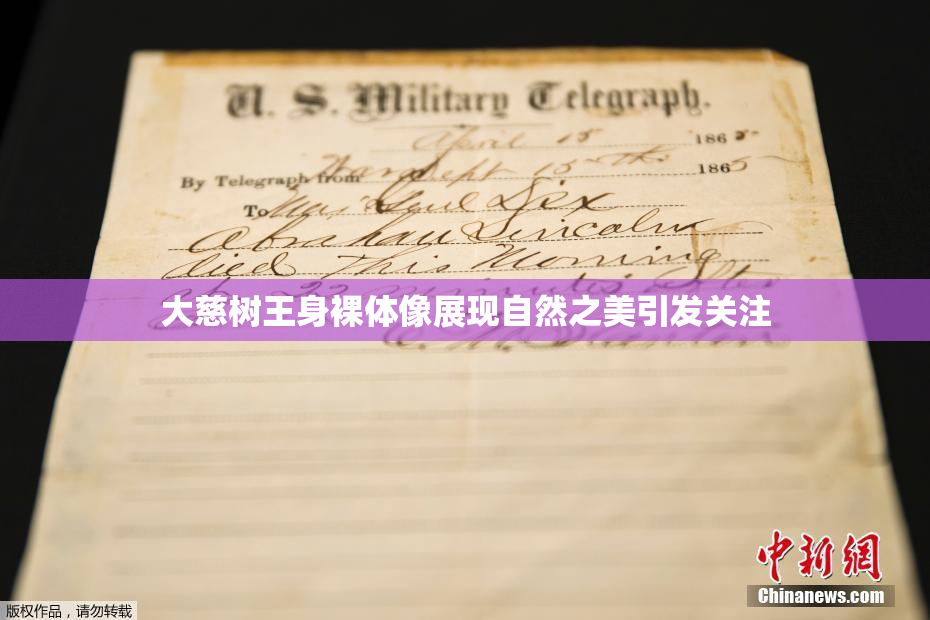 U. S. Military Telegraph.
April 15 1865
By Telegraph from War Dept 15th 1865
To Maj Genl Dix
Abraham Lincoln
died This Morning
at 22 minutes after
大慈树王身裸体像展现自然之美引发关注
E. M. Stanton
中新网
Chinanews.com
版权作品，请勿转载